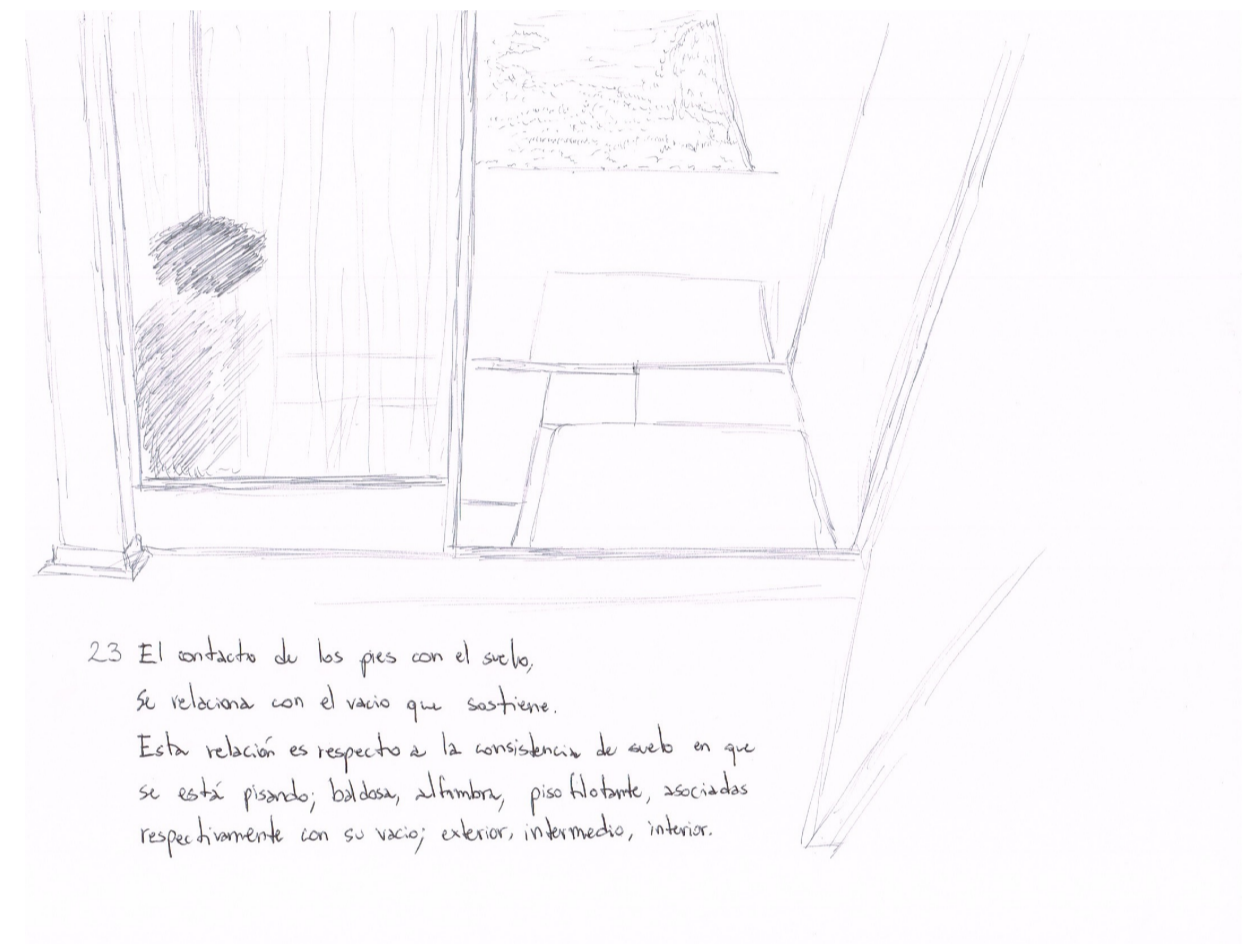 23 El contacto de los pies con el suelo,
se relaciona con el vacio que sostiene.
Esta relación es respecto a la consistencia de suelo en que
se está pisando; baldosa, alfombra, piso flotante, asociadas
respectivamente con su vacio; exterior, intermedio, interior.